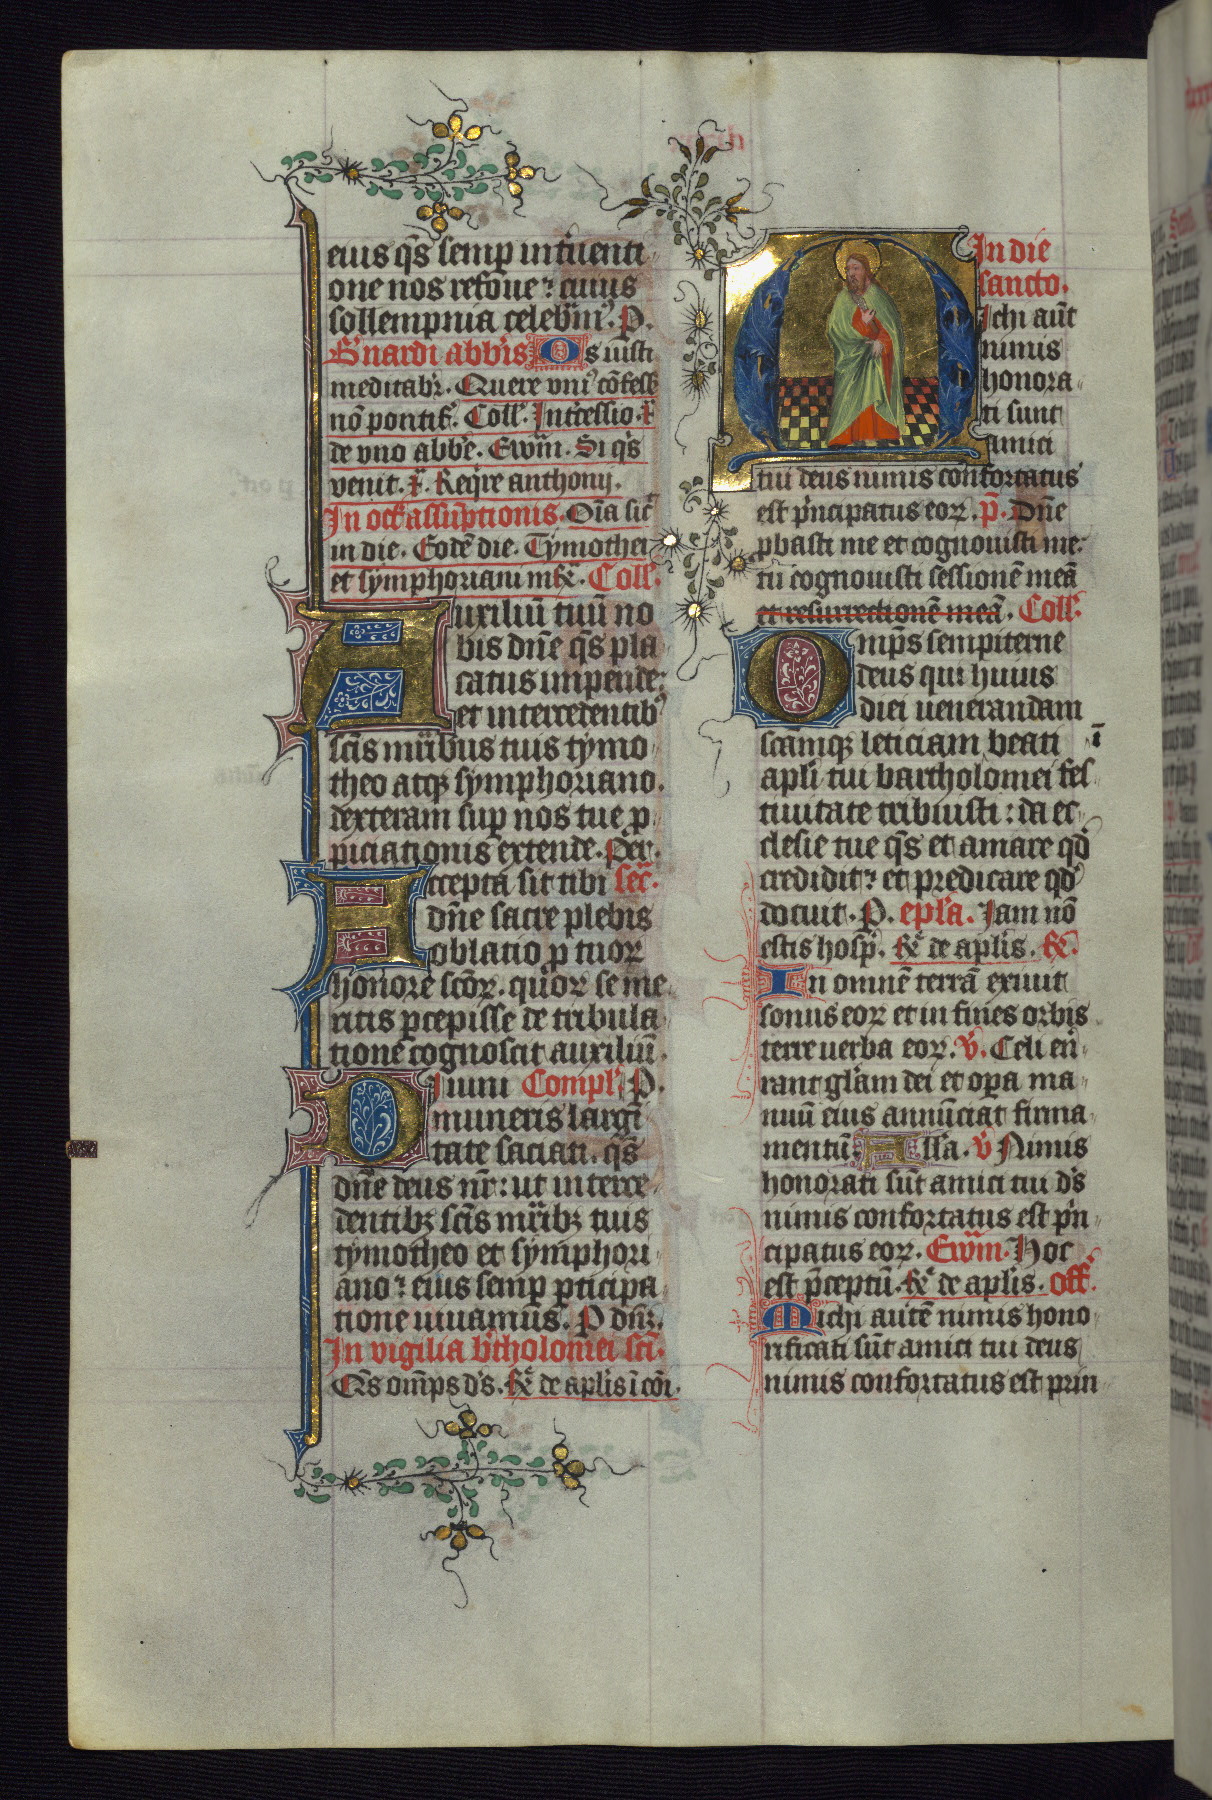 eius q̄s semp̲ int̓uenti
one nos refoue: cuius
sollempnia celeb̓m᷒. P.
B̓nardi abb̓is Os iusti
meditab̓r. Quere vni᷒ cōfess̓
nō pontif̓. Coll̓. Int̓cessio. r̄
de vno abb̓e. Ew̄m. Si q̓s
venit. r̄. Req̓re anthonij.
In oct̓ assūptionis. Oīa sic̄
in die. Eodē die. Tymothei
et symphoriani m̄r̄. Coll̓.
Auxiliū tuū no
bis dn̄e q̄s pla
catus impende:
et intercedentib᷒
sc̄is mr̄ibus tuis tymo
theo atqꝫ symphoriano.
dexteram sup̲ nos tue ꝓ
piciationis extende. Per.
Accepta sit tibi secr̄.
dn̄e sacre plebis
oblatio ꝓ tuoꝝ
honore sc̄oꝝ. quoꝝ se me
ritis p̲cepisse de tribula
tione cognoscit auxiliū.
Diuini Compl̓. P.
muneris largi
tate saciati. q̄s
dn̄e deus nr̄: ut interce
dentibꝫ sc̄is mr̄ibꝫ tuis
tymotheo et symphori
ano: eius semp̲ p̲ticipa
tione uiuamus. P dn̄r.
In vigilia b̓tholomei sc̄i.
Q̄s om̄ps d̓s. Rͤ de apl̓is ī cōi.
In die
sancto.
Michi aūt
nimis
honora
ti sunt
amici
tui deus nimis confortatus
est p̓ncipatus eoꝝ. p̄. Dn̄e
ꝓbasti me et cognouisti me:
tu cognouisti sessionē meā
et resurrectionē meā. Coll̓.
Omp̄s sempiterne
deus qui huius
diei uenerandam
sc̄amqꝫ leticiam beati ī
apl̓i tui bartholomei fes
tiuitate tribuisti: da ec
clesie tue q̄s et amare qd̓
credidit: et predicare qd̓
docuit. P. ep̄la. Iam nō
estis hosp̓. Rͤ de apl̓is. R̄.
In omnē terrā exiuit
sonus eoꝝ et in fines orbis
terre uerba eoꝝ. V̓. Celi en̄
rant gl̓am dei et op̲a ma
nuū eius annūciat firma
mentū. All̓a. V̓ Nimis
honorati sūt amici tui d̓s
nimis confortatus est p̓n
cipatus eoꝝ. Ew̄m. Hoc
est p̄ceptū. Rͤ de apl̓is. off̓.
Michi autē nimis hono
rificati sūt amici tui deus
nimis confortatus est prin